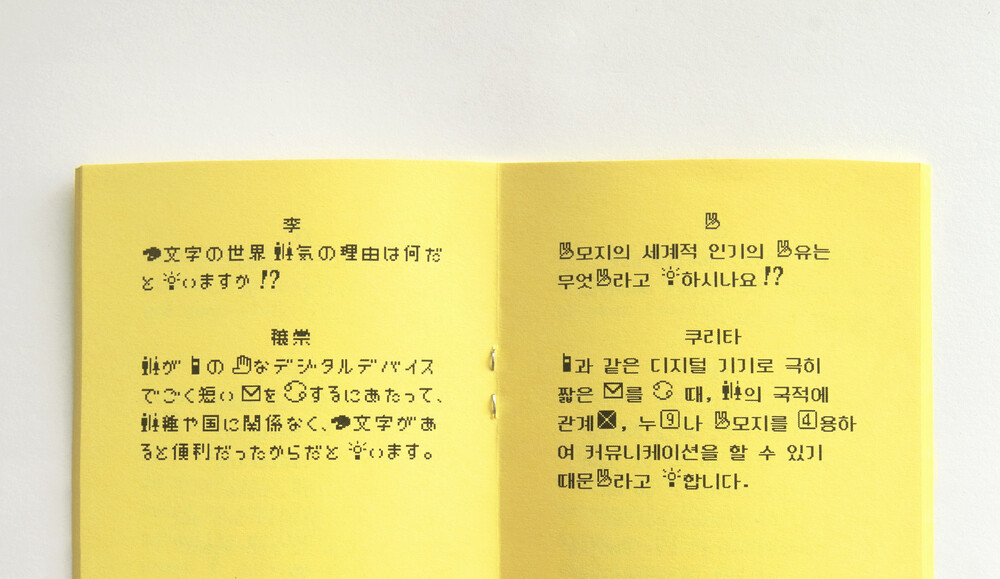 李
🎨文字の世界👫気の理由は何だ
と💡いますか⁉
穣崇
👫が📱の✋なデジタルデバイス
でごく短い✉を♋するにあたって、
👫種や国に関係なく、🎨文字があ
ると便利だったからだと💡います。
✌
✌모지의 세계적 인기의 ✌유는
무엇✌라고 💡하시나요⁉
쿠리타
📱과 같은 디지털 기기로 극히
짧은 ✉를 ♋ 때, 👫의 국적에
관계❎, 누9️⃣나 ✌모지를 4️⃣용하
여 커뮤니케이션을 할 수 있기
때문✌라고 💡합니다.